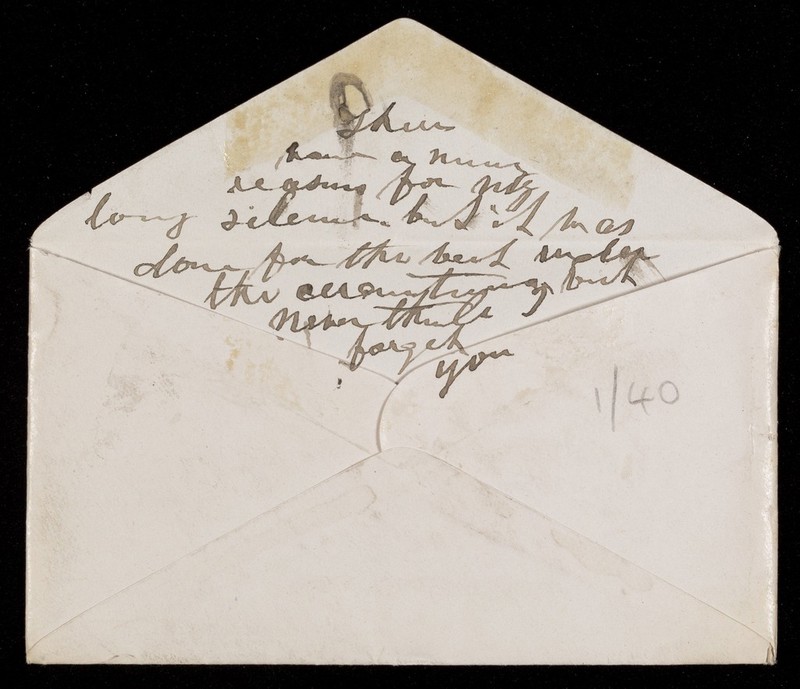 reasons for my
long silence. but it was
done for the best under
the circumstances but
never think I
forget
you
1/40